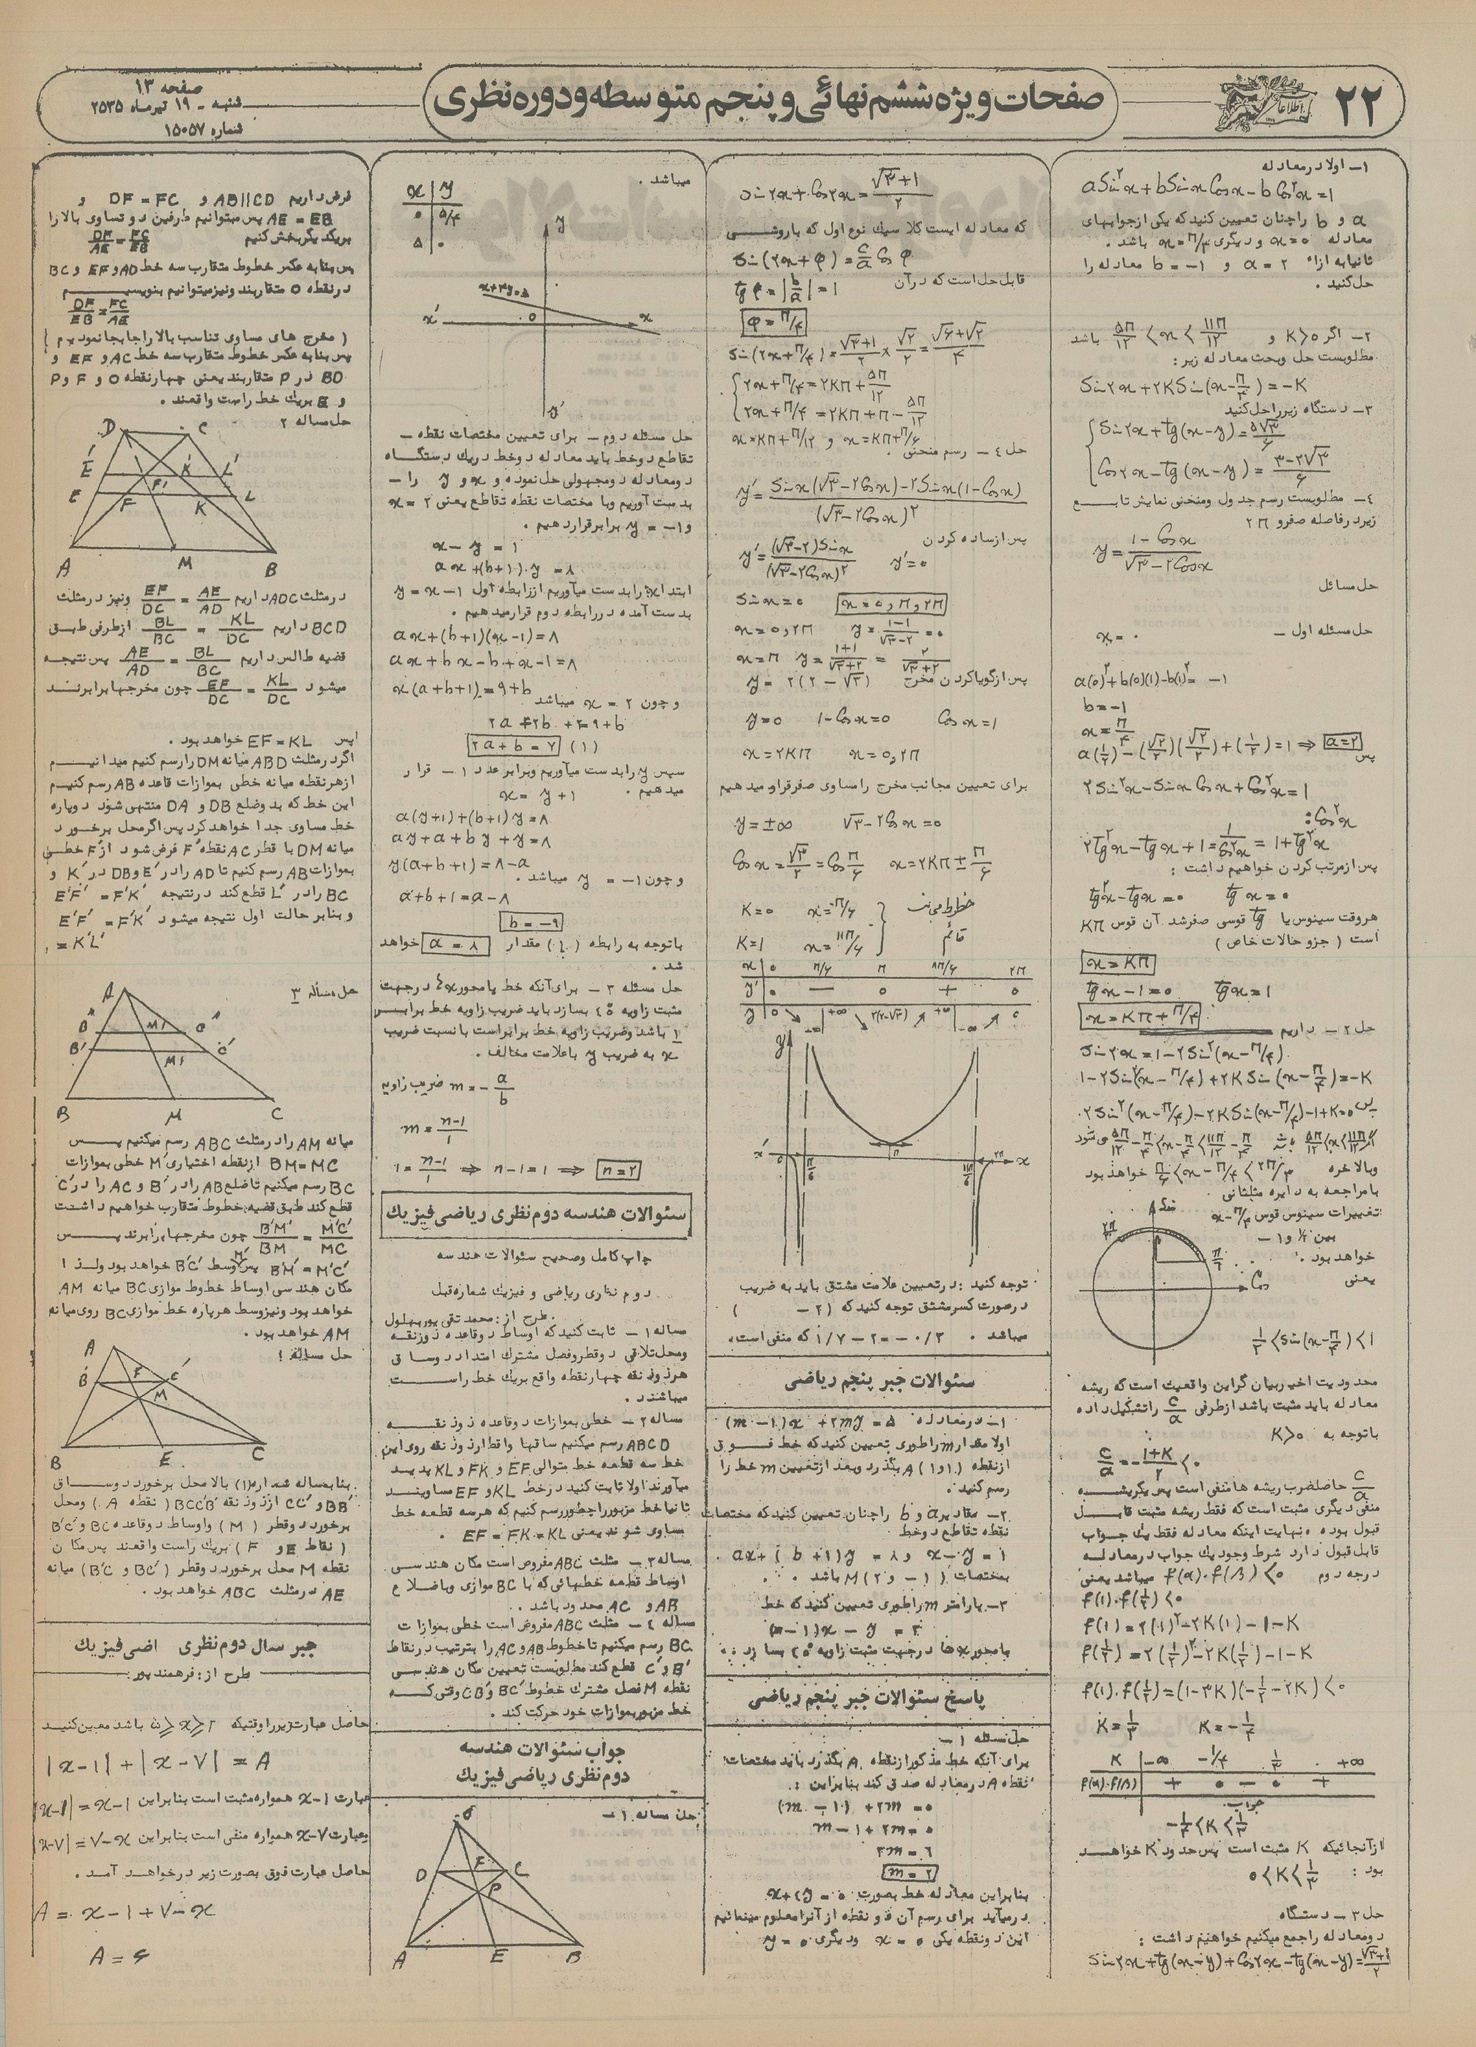 ۲۲
اطلاعات
صفحات ویژه ششم نهائی و پنجم متوسطه و دوره نظری
صفحه ۱۳
شنبه - ۱۹ تیرماه ۲۵۳۵
شماره ۱۵۰۵۷
۱- اولا در معادله
a Sin²x + b Sin x Cos x - b Cos²x = ۱
a و b را چنان تعیین کنید که یکی از جوابهای
معادله x=۰ و دیگری x=π/۴ باشد .
ثانیا به ازاء a = ۲ و b = -۱ معادله را
حل کنید .
۲- اگر K>۰ و ۵π/۱۲ < x < ۱۱π/۱۲ باشد
مطلوبست حل وبحث معادله زیر :
Sin ۲x + ۲K Sin(x-π/۴) = -K
۳- دستگاه زیر را حل کنید
Sin ۲x + tg(x-y) = ۵√۳/۶
Cos ۲x - tg(x-y) = ۳-۲√۳/۶
۴- مطلوبست رسم جدول ومنحنی نمایش تابع
زیر در فاصله صفر و ۲π
y = ۱-Cos x / √۳-۲Cos x
حل مسائل
حل مسئله اول - x=۰
a(۰)²+b(۰)(۱)-b(۱)² = ۱
b=-۱
x=π/۴
پس a=۲
۲Sin²x - Sin x Cos x + Cos²x = ۱
: Cos²x
۲tg²x - tg x + ۱ = ۱/Cos²x = ۱+tg²x
پس از مرتب کردن خواهیم داشت :
tg²x - tg x = ۰ tg x = ۰
هروقت سینوس یا tg قوسی صفر شد آن قوس Kπ
است ( جزو حالات خاص )
x=Kπ
tg x - ۱=۰ tg x = ۱
x=Kπ+π/۴
حل ۲ - داریم
Sin ۲x = ۱-۲Sin²(x-π/۴)
۱-۲Sin²(x-π/۴)+۲K Sin(x-π/۴)=-K
پس ۲Sin²(x-π/۴)-۲K Sin(x-π/۴)-۱-K=۰
وبالاخره π/۶ < x-π/۴ < ۲π/۳ خواهد بود
با مراجعه به دایره مثلثاتی
تغییرات سینوس قوس x-π/۴
بین ۱/۲ و ۱ -
خواهد بود .
یعنی
۱/۲ < Sin(x-π/۴) < ۱
محدودیت اخیر بیان گر این واقعیت است که ریشه
معادله باید مثبت باشد از طرفی c/a را تشکیل داده
با توجه به K>۰
c/a = - ۱+K/۲ < ۰
c/a حاصلضرب ریشه ها منفی است پس یک ریشه
منفی دیگری مثبت است که فقط ریشه مثبت قابل
قبول بوده ونهایت اینکه معادله فقط یک جواب
قابل قبول دارد شرط وجود یک جواب در معادله
درجه دوم f(α).f(β) < ۰ میباشد یعنی
f(۱).f(۱/۲) < ۰
f(۱) = ۲(۱)²-۲K(۱)-۱-K
f(۱/۲) = ۲(۱/۲)²-۲K(۱/۲)-۱-K
f(۱).f(۱/۲) = (۱-۳K)(-۱/۲-۲K) < ۰
K=۱/۳ K=-۱/۴
K -∞ -۱/۴ ۱/۳ +∞
f(α).f(β) + ۰ - ۰ +
جواب
-۱/۴ < K < ۱/۳
از آنجائیکه K مثبت است پس حدود K خواهد
بود : ۰ < K < ۱/۳
حل ۳ - دستگاه
دو معادله را جمع میکنیم خواهیم داشت :
Sin ۲x + tg(x-y) + Cos ۲x - tg(x-y) = √۳+۱/۲
Sin ۲x + Cos ۲x = √۳+۱/۲
که معادله ایست کلاسیک نوع اول که با روش
Sin(۲x+φ) = c/a Cos φ
قابل حل است که در آن tg φ = |b/a| = ۱
φ=π/۴
Sin(۲x+π/۴) = √۳+۱/۲ × √۲/۲ = √۶+√۲/۴
۲x+π/۴ = ۲Kπ+۵π/۱۲
۲x+π/۴ = ۲Kπ+π-۵π/۱۲
x=Kπ+π/۱۲ و x=Kπ+π/۶
حل ٤ - رسم منحنی .
y' = Sin x(√۳-۲Cos x)-۲Sin x(۱-Cos x) / (√۳-۲Cos x)²
پس از ساده کردن
y' = (√۳-۲)Sin x / (√۳-۲Cos x)² y'=۰
Sin x=۰ x=۰,π,۲π
x=۰,۲π y= ۱-۱/√۳-۲ = ۰
x=π y= ۱+۱/√۳+۲ = ۲/√۳+۲
پس از گویا کردن مخرج y = ۲(۲-√۳)
y=۰ ۱-Cos x=۰ Cos x=۱
x=۲Kπ x=۰,۲π
برای تعیین مجانب مخرج را مساوی صفر قرار میدهیم
y=±∞ √۳-۲Cos x=۰
Cos x = √۳/۲ = Cos π/۶ x=۲Kπ±π/۶
K=۰ x=π/۶
K=۱ x=۱۱π/۶
قائم
توجه کنید : در تعیین علامت مشتق باید به ضریب
در صورت کسر مشتق توجه کنید که ( ۲ - )
میباشد . ۱/۷ - ۲ = -۰/۳ که منفی است .
سئوالات جبر پنجم ریاضی
۱- در معادله (m-۱)x + ۲my = ۵
اولا مقدار m را طوری تعیین کنید که خط فوق
از نقطه A (۱و۱) بگذرد وبعد از تعیین m خط را
رسم کنید .
۲- مقادیر a و b را چنان تعیین کنید که مختصات
نقطه تقاطع دوخط
x - y = ۱ و ax+(b+۱)y = ۸
بمختصات M(۲ و -۱) باشد .
۳- پارامتر m را طوری تعیین کنید که خط
با محور xها در جهت مثبت زاویه ٤٥ بسازد .
پاسخ سئوالات جبر پنجم ریاضی
حل مسئله ۱ -
برای آنکه خط مذکور از نقطه A بگذرد باید مختصات
نقطه A در معادله صدق کند بنابراین :
(m-۱)+۲m = ۵
m-۱+۲m = ۵
۳m = ٦
m = ۲
بنابراین معادله خط بصورت x+٤y = ۵
در میآید برای رسم آن دو نقطه از آنرا معلوم مینمائیم
این دو نقطه یکی x = ۰ و دیگری y = ۰
میباشد .
x y
۰ ۵/۴
۵ ۰
x+۴y=۵
حل مسئله دوم - برای تعیین مختصات نقطه -
تقاطع دوخط باید معادله دوخط در یک دستگاه
دو معادله دو مجهولی حل نموده و x و y را -
بدست آوریم وبا مختصات نقطه تقاطع یعنی x = ۲
و y = -۱ برابر قرار دهیم .
x - y = ۱
ax +(b+۱).y = ۸
ابتدا x را بدست میآوریم از رابطه اول y = x-۱
بدست آمده در رابطه دوم قرار میدهیم .
ax+(b+۱)(x-۱)=۸
ax+bx-b+x-۱=۸
x(a+b+۱)=۹+b
و چون x = ۲ میباشد
۲a+۲b+۲=۹+b
۲a+b = ۷ (۱)
سپس y را بدست میآوریم وبرابر عدد ۱ - قرار
میدهیم . x= y+۱
a(y+۱)+(b+۱)y=۸
ay+a+by+y=۸
y(a+b+۱)=۸-a
و چون y = -۱ میباشد .
a+b+۱=a-۸
b=-۹
با توجه به رابطه (۱) مقدار a = ۸ خواهد
شد .
حل مسئله ۳ - برای آنکه خط با محور xها در جهت
مثبت زاویه ٤٥ بسازد باید ضریب زاویه خط برابر
۱ باشد وضریب زاویه خط برابر است با نسبت ضریب
x به ضریب y با علامت مخالف .
ضریب زاویه m = - a/b
m = n-۱/۱
۱ = n-۱/۱ ⇒ n-۱=۱ ⇒ n=۲
سئوالات هندسه دوم نظری ریاضی فیزیک
چاپ کامل وصحیح سئوالات هندسه
دوم نظری ریاضی و فیزیک شماره قبل
طرح از : محمد تقی پوربهلول
مساله ۱ - ثابت کنید که اوساط دو قاعده ذوزنقه
ومحل تلاقی دو قطر وفصل مشترک امتداد دو ساق
هر ذوزنقه چهار نقطه واقع بر یک خط راست
میباشند .
مساله ۲ - خطی بموازات دو قاعده ذوزنقه
ABCD رسم میکنیم ساقها واقطار ذوزنقه روی این
خط سه قطعه خط متوالی EF و FK و KL پدید
میآورند اولا ثابت کنید دو خط KL و EF مساویند
ثانیا خط مزبور را چطور رسم کنیم که هر سه قطعه خط
مساوی شوند یعنی EF = FK = KL .
مساله ۳ - مثلث ABC مفروض است مکان هندسی
اوساط قطعه خطهائی که با BC موازی وباضلاع
AB و AC محدود باشد .
مساله ٤ - مثلث ABC مفروض است خطی بموازات
BC رسم میکنیم تا خطوط AB و AC را بترتیب در نقاط
B' و C' قطع کند مطلوبست تعیین مکان هندسی
نقطه M فصل مشترک خطوط BC' و CB' وقتی که
خط مزبور بموازات خود حرکت کند .
جواب سئوالات هندسه
دوم نظری ریاضی فیزیک
حل مساله ۱ -
فرض داریم AB||CD و DF = FC و
AE = EB پس میتوانیم طرفین دو تساوی بالا را
بریکدیگر بخش کنیم DF/AE = FC/EB
پس بنا به عکس خطوط متقارب سه خط AD و EF و BC
در نقطه O متقاربند ونیز میتوانیم بنویسیم
DF/EB = FC/AE
( مخرج های مساوی تناسب بالا را جابجا نمودیم )
پس بنا به عکس خطوط متقارب سه خط AC و EF و
BD در P متقاربند یعنی چهار نقطه O و F و P
و E بریک خط راست واقعند .
حل مساله ۲
در مثلث ADC داریم EF/DC = AE/AD ونیز در مثلث
BCD داریم BL/BC = KL/DC از طرفی طبق
قضیه طالس داریم AE/AD = BL/BC پس نتیجه
میشود EF/DC = KL/DC چون مخرجها برابرند
پس EF = KL خواهد بود .
اگر در مثلث ABD میانه DM را رسم کنیم میدانیم
از هر نقطه میانه خطی بموازات قاعده AB رسم کنیم
این خط که بدو ضلع DB و DA منتهی شود دو پاره
خط مساوی جدا خواهد کرد پس اگر محل برخورد
میانه DM با قطر AC نقطه F' فرض شود از F' خطی
بموازات AB رسم کنیم تا AD را در E' و DB در K' و
BC را در L' قطع کند در نتیجه E'F' = F'K'
و بنا بر حالت اول نتیجه میشود E'F' = F'K'
= K'L' .
حل مساله ۳
میانه AM را در مثلث ABC رسم میکنیم پس
BM=MC از نقطه اختیاری M' خطی بموازات
BC رسم میکنیم تا ضلع AB را در B' و AC را در C'
قطع کند طبق قضیه خطوط متقارب خواهیم داشت
B'M'/BM = M'C'/MC چون مخرجها برابرند پس
B'M' = M'C' پس M' وسط B'C' خواهد بود ولذا
مکان هندسی اوساط خطوط موازی BC میانه AM
خواهد بود ونیز وسط هر پاره خط موازی BC روی میانه
AM خواهد بود .
حل مساله ٤
بنا بمساله شماره (۱) بالا محل برخورد دو ساق
BB' و CC' از ذوزنقه BCC'B' ( نقطه A ) ومحل
برخورد دو قطر ( M ) و اوساط دو قاعده BC و B'C'
( نقاط E و F ) بریک راست واقعند پس مکان
نقطه M محل برخورد دو قطر ( BC' و B'C ) میانه
AE در مثلث ABC خواهد بود .
جبر سال دوم نظری ریاضی فیزیک
طرح از : فرهمند پور :
حاصل عبارت زیر را وقتیکه ۵≥x≥۲ باشد معین کنید
|x-۱| + |x-۷| = A
عبارت x-۱ همواره مثبت است بنابراین |x-۱|=x-۱
وعبارت x-۷ همواره منفی است بنابراین |x-۷|=۷-x
حاصل عبارت فوق بصورت زیر در خواهد آمد .
A = x-۱+۷-x
A = ۶